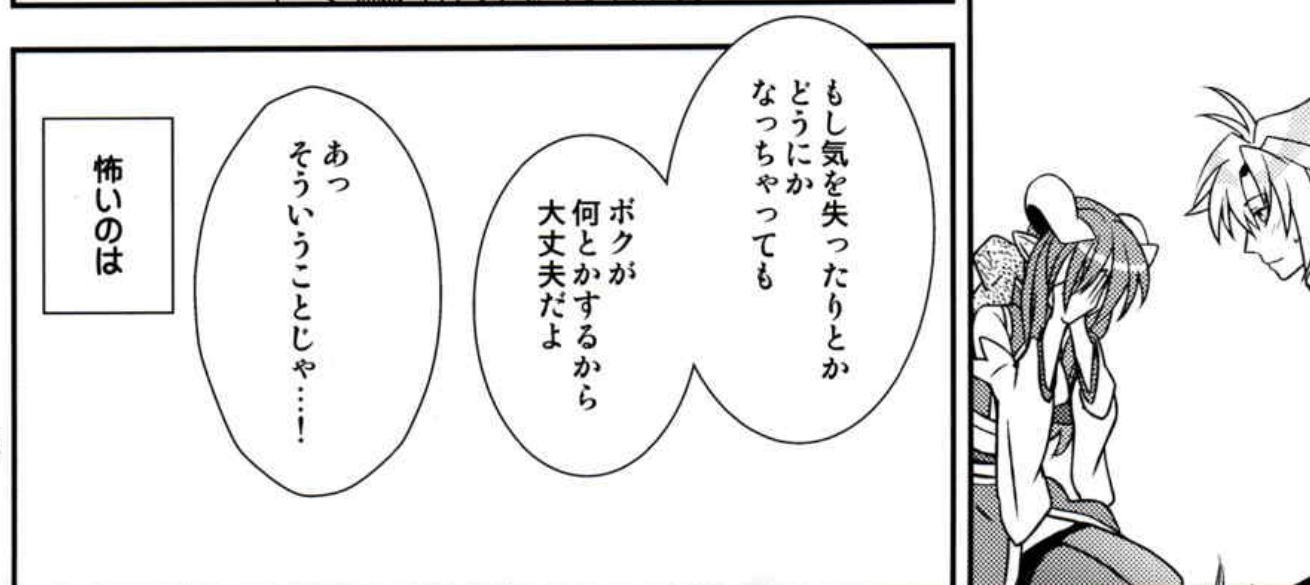 もし気を失ったりとか
どうにか
なっちゃっても
ボクが
何とかするから
大丈夫だよ
あっ
そういうことじゃ…!
怖いのは